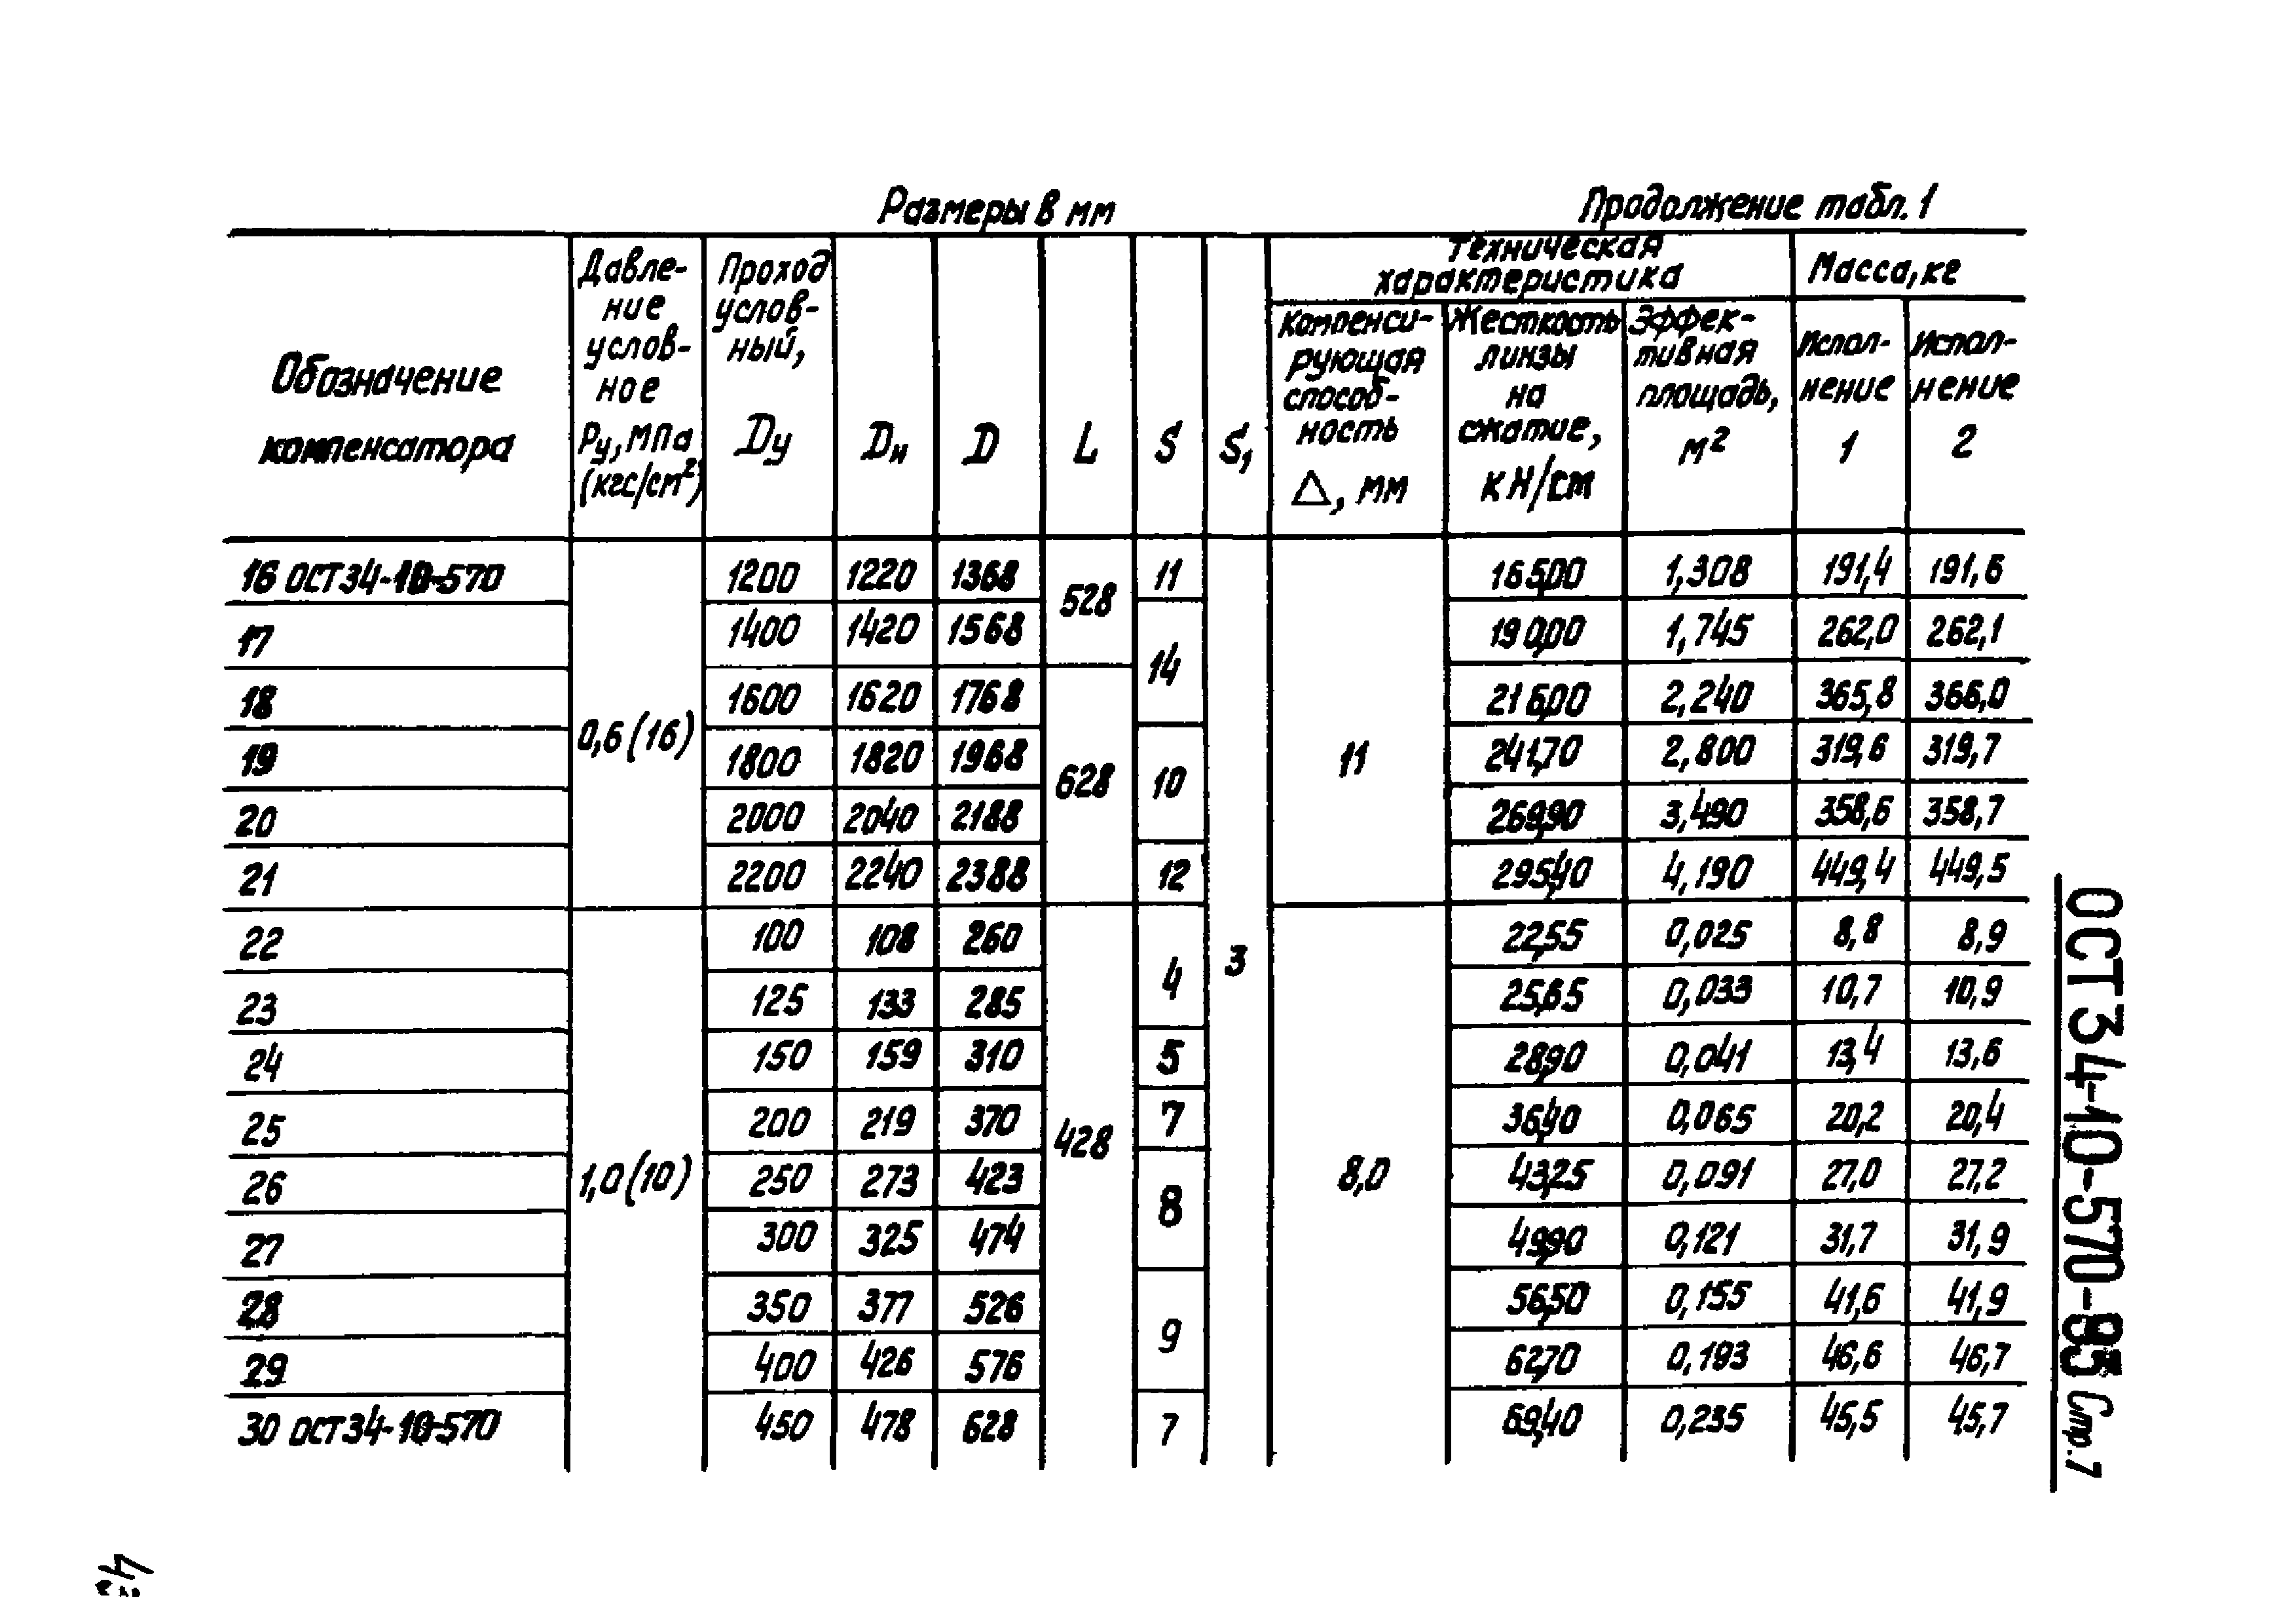 Размеры в мм
Продолжение табл. 1
Обозначение компенсатора
Давле-
ние
услов-
ное
Ру, МПа
(кгс/см²)
Проход
услов-
ный,
Dу
Dн
D
L
S
S₁
Техническая
характеристика
Компенси-
рующая
способ-
ность
△, мм
Жесткость
линзы
на
сжатие,
кН/см
Эффек-
тивная
площадь,
м²
Масса, кг
Испол-
нение
1
Испол-
нение
2
16 ОСТ 34-10-570 0,6 (16) 1200 1220 1368 528 11 3 11 165,00 1,308 191,4 191,6
17 1400 1420 1568 14 190,00 1,745 262,0 262,1
18 1600 1620 1768 628 216,00 2,240 365,8 366,0
19 1800 1820 1968 10 241,70 2,800 319,6 319,7
20 2000 2040 2188 269,90 3,490 358,6 358,7
21 2200 2240 2388 12 295,40 4,190 449,4 449,5
22 1,0 (10) 100 108 260 428 4 8,0 22,55 0,025 8,8 8,9
23 125 133 285 25,65 0,033 10,7 10,9
24 150 159 310 5 28,90 0,041 13,4 13,6
25 200 219 370 7 36,40 0,065 20,2 20,4
26 250 273 423 8 43,25 0,091 27,0 27,2
27 300 325 474 49,90 0,121 31,7 31,9
28 350 377 526 9 56,50 0,155 41,6 41,9
29 400 426 576 62,70 0,193 46,6 46,7
30 ОСТ 34-10-570 450 478 628 7 69,40 0,235 45,5 45,7
ОСТ 34-10-570-85 Стр. 7